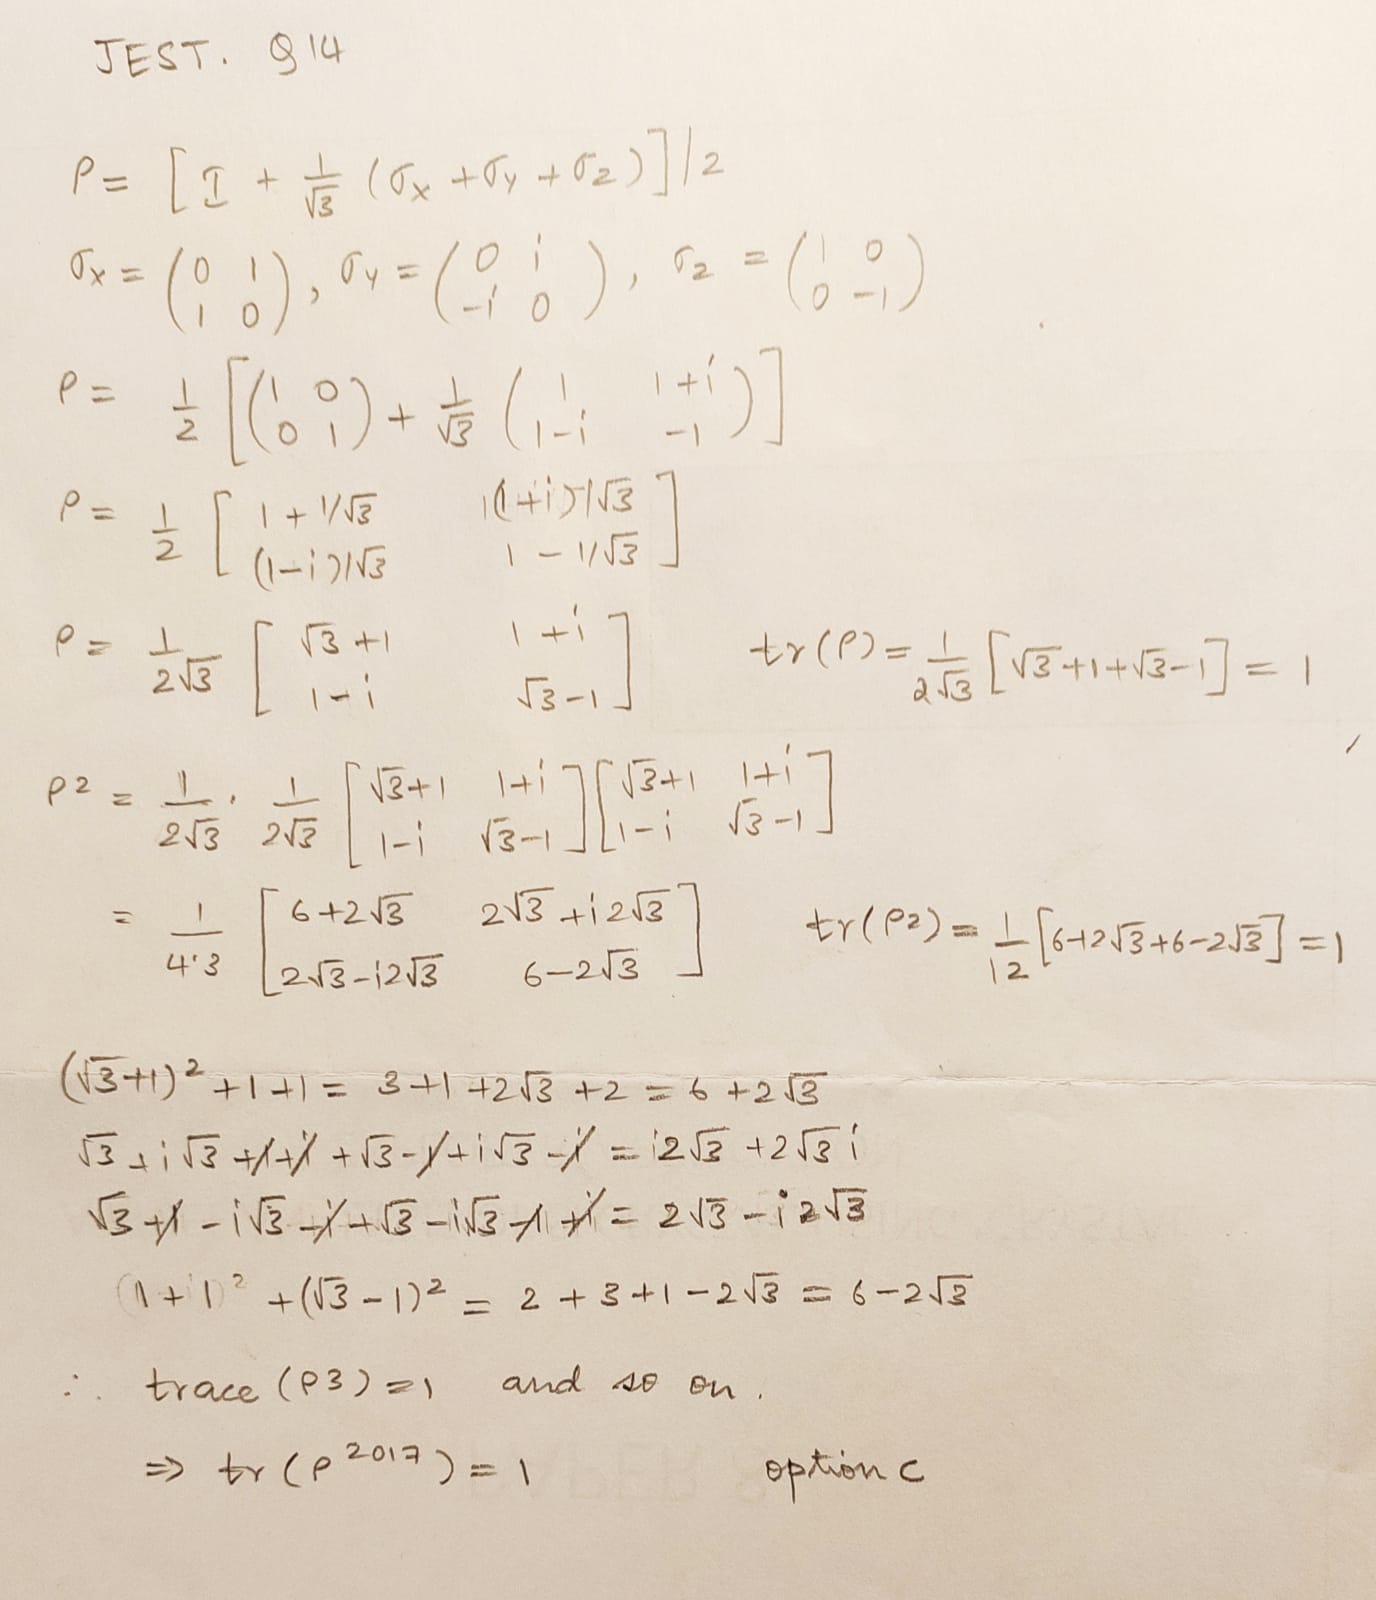 JEST. Q14
ρ = [I + 1/√3 (σx + σy + σz)]/2
σx = (0 1; 1 0), σy = (0 i; -i 0), σz = (1 0; 0 -1)
ρ = 1/2 [(1 0; 0 1) + 1/√3 (1 1+i; 1-i -1)]
ρ = 1/2 [1+1/√3 (1+i)/√3; (1-i)/√3 1-1/√3]
ρ = 1/2√3 [√3+1 1+i; 1-i √3-1] tr(ρ) = 1/2√3 [√3+1+√3-1] = 1
ρ2 = 1/2√3 . 1/2√3 [√3+1 1+i; 1-i √3-1] [√3+1 1+i; 1-i √3-1]
= 1/4·3 [6+2√3 2√3+i2√3; 2√3-i2√3 6-2√3] tr(ρ2) = 1/12 [6+2√3+6-2√3] = 1
(√3+1)² +1+1 = 3+1+2√3+2 = 6+2√3
√3+i√3+1+i+√3-1+i√3-i = i2√3+2√3i
√3+1-i√3-i+√3-i√3-1+i = 2√3-i2√3
(1+1)² +(√3-1)² = 2+3+1-2√3 = 6-2√3
∴ trace(ρ3)=1 and so on.
⇒ tr(ρ²⁰¹⁷) = 1 option C